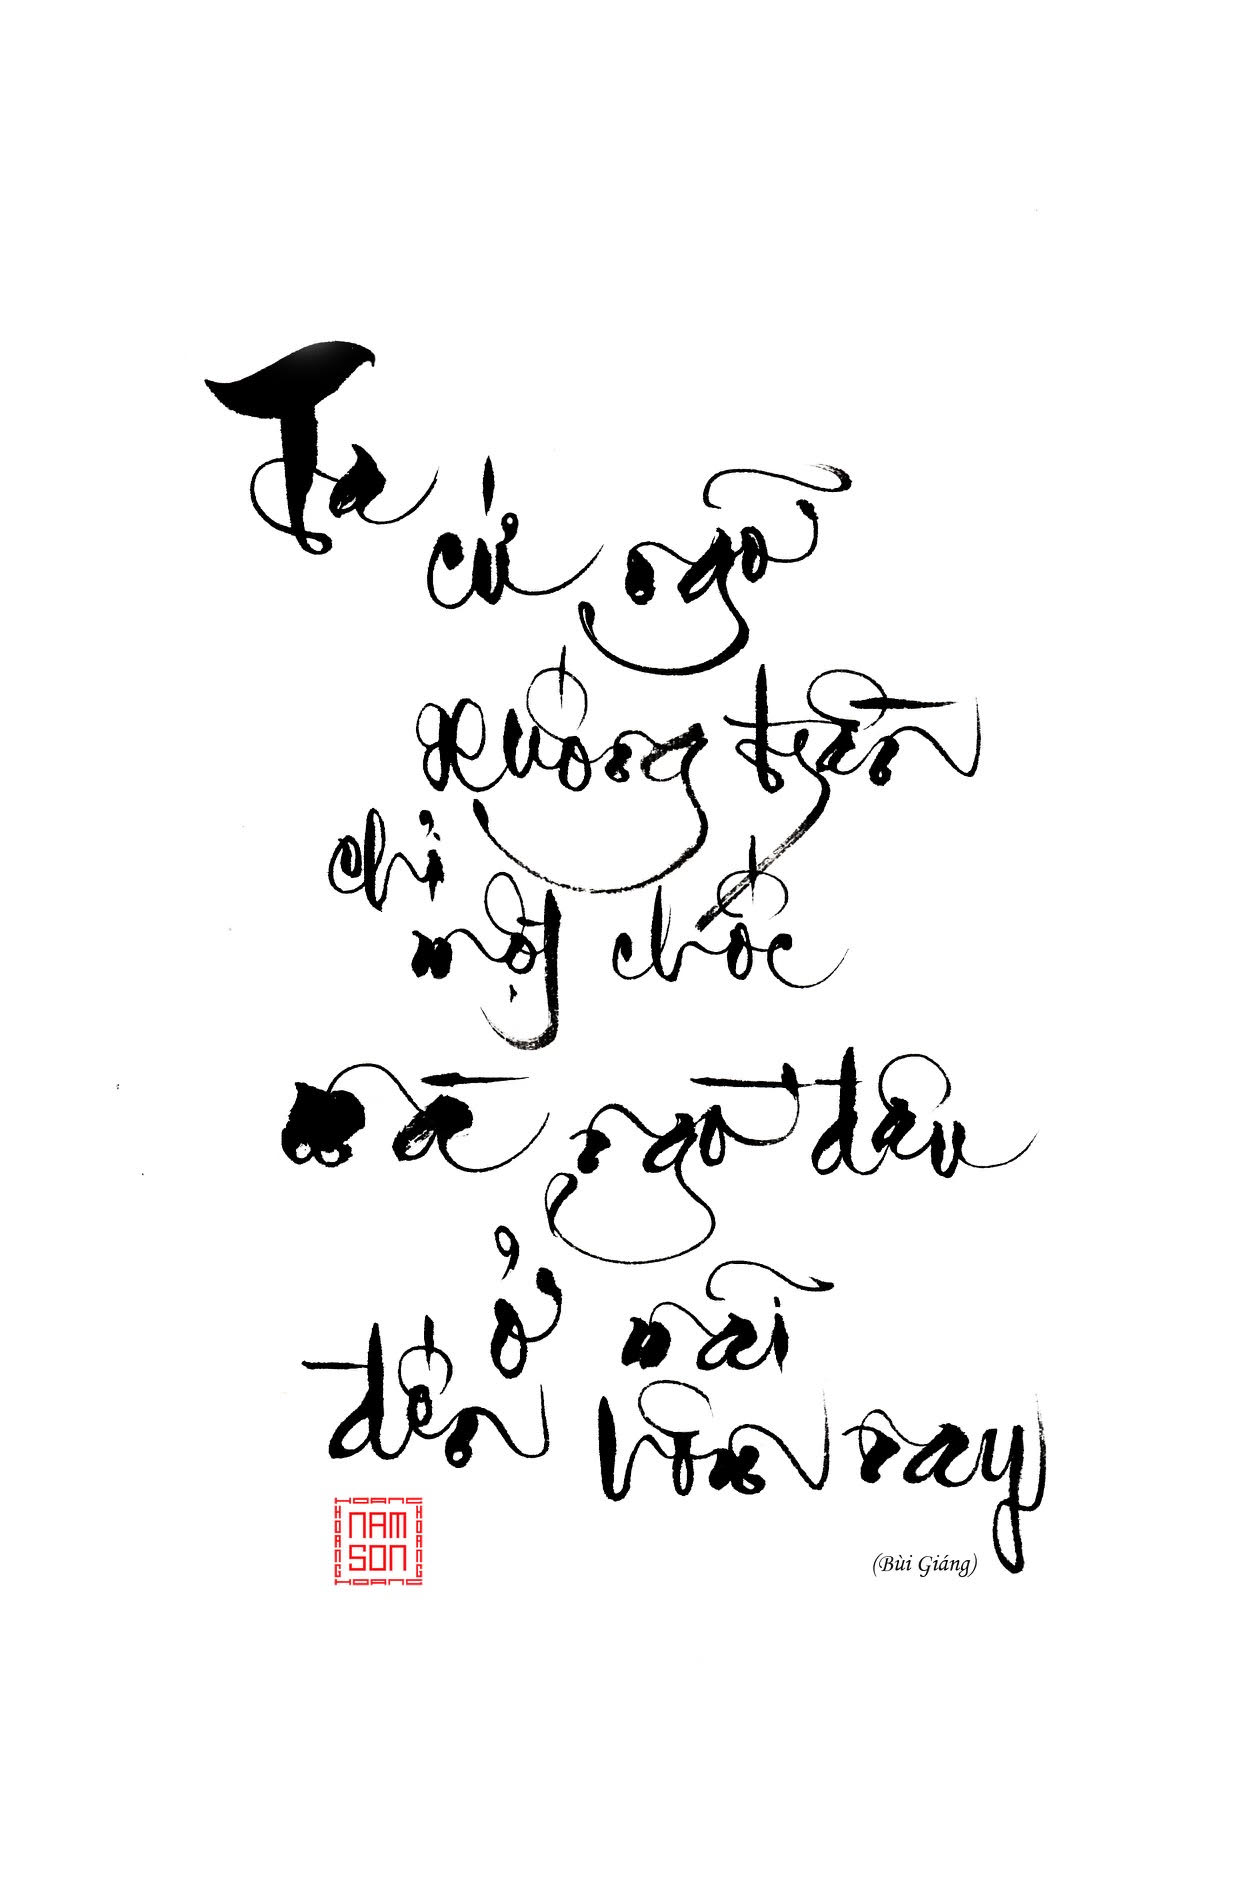 Ta
cứ ngỡ
xuống trần
chỉ
một chốc
nào ngờ đâu
ở mãi
đến hôm nay
(Bùi Giáng)
HOANG
HOANG NAM HOANG
SON
HOANG